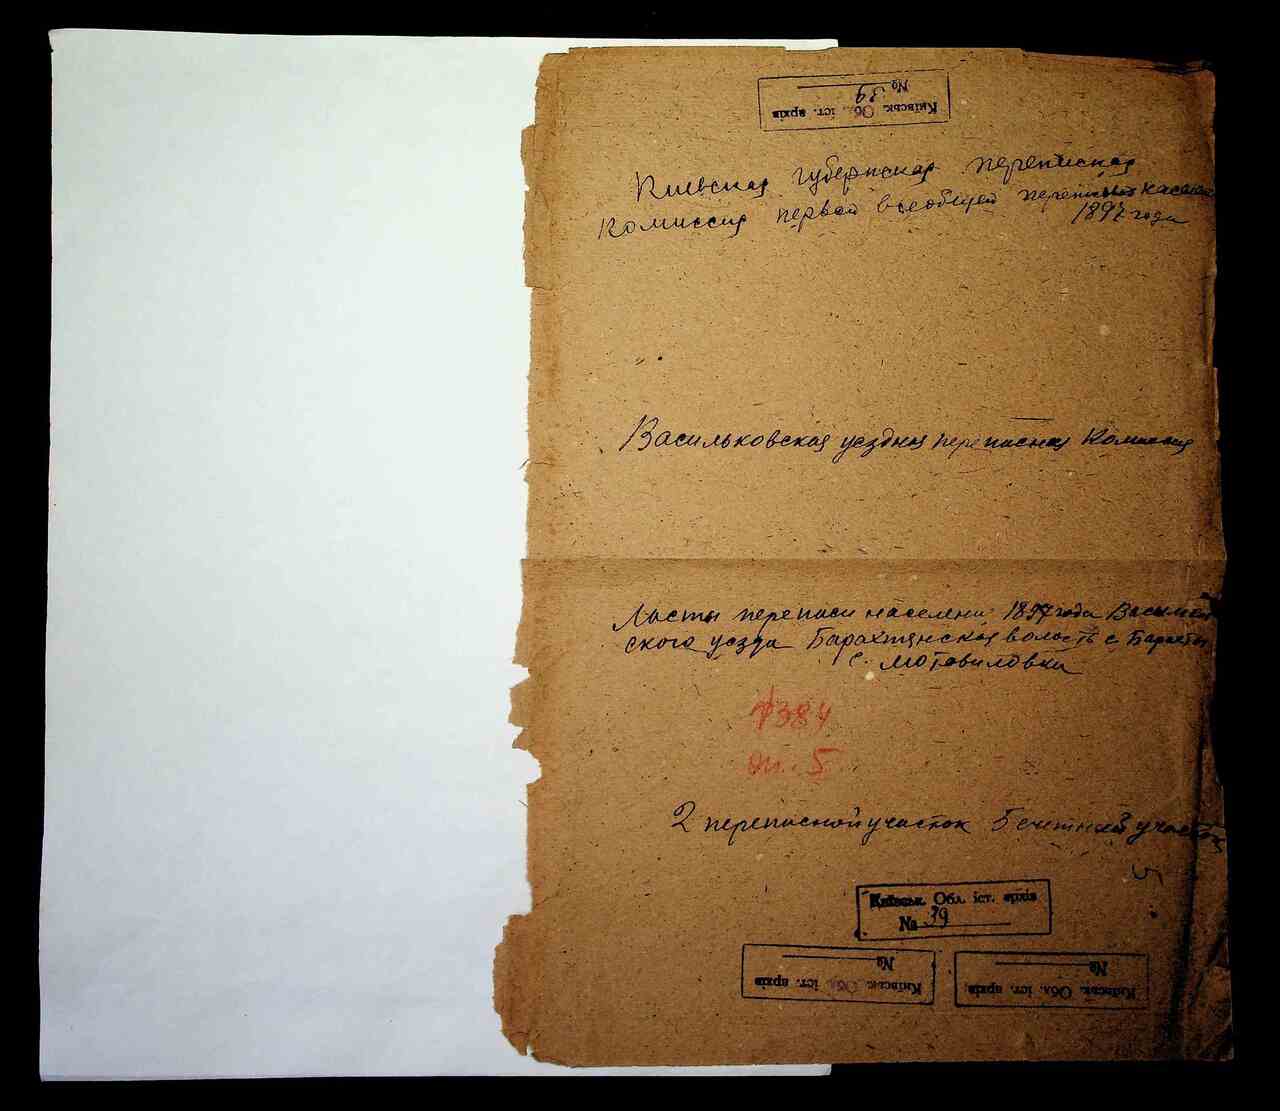 Київськ. Обл. іст. архів
№ 39
Киевская губернская переписная
Комиссия первой всеобщей переписи
1897 года
Васильковская уездная переписная Комиссия
Листы переписи населения 1897 года Васильков
ского уезда Барахтянская волость с Барахты
с. Мотовиловка
1384
оп. 5
2 переписной участок 5 счетный участок
5
Київськ. Обл. іст. архів
№ 39
Київськ. Обл. іст. архів
№
Київськ. Обл. іст. архів
№